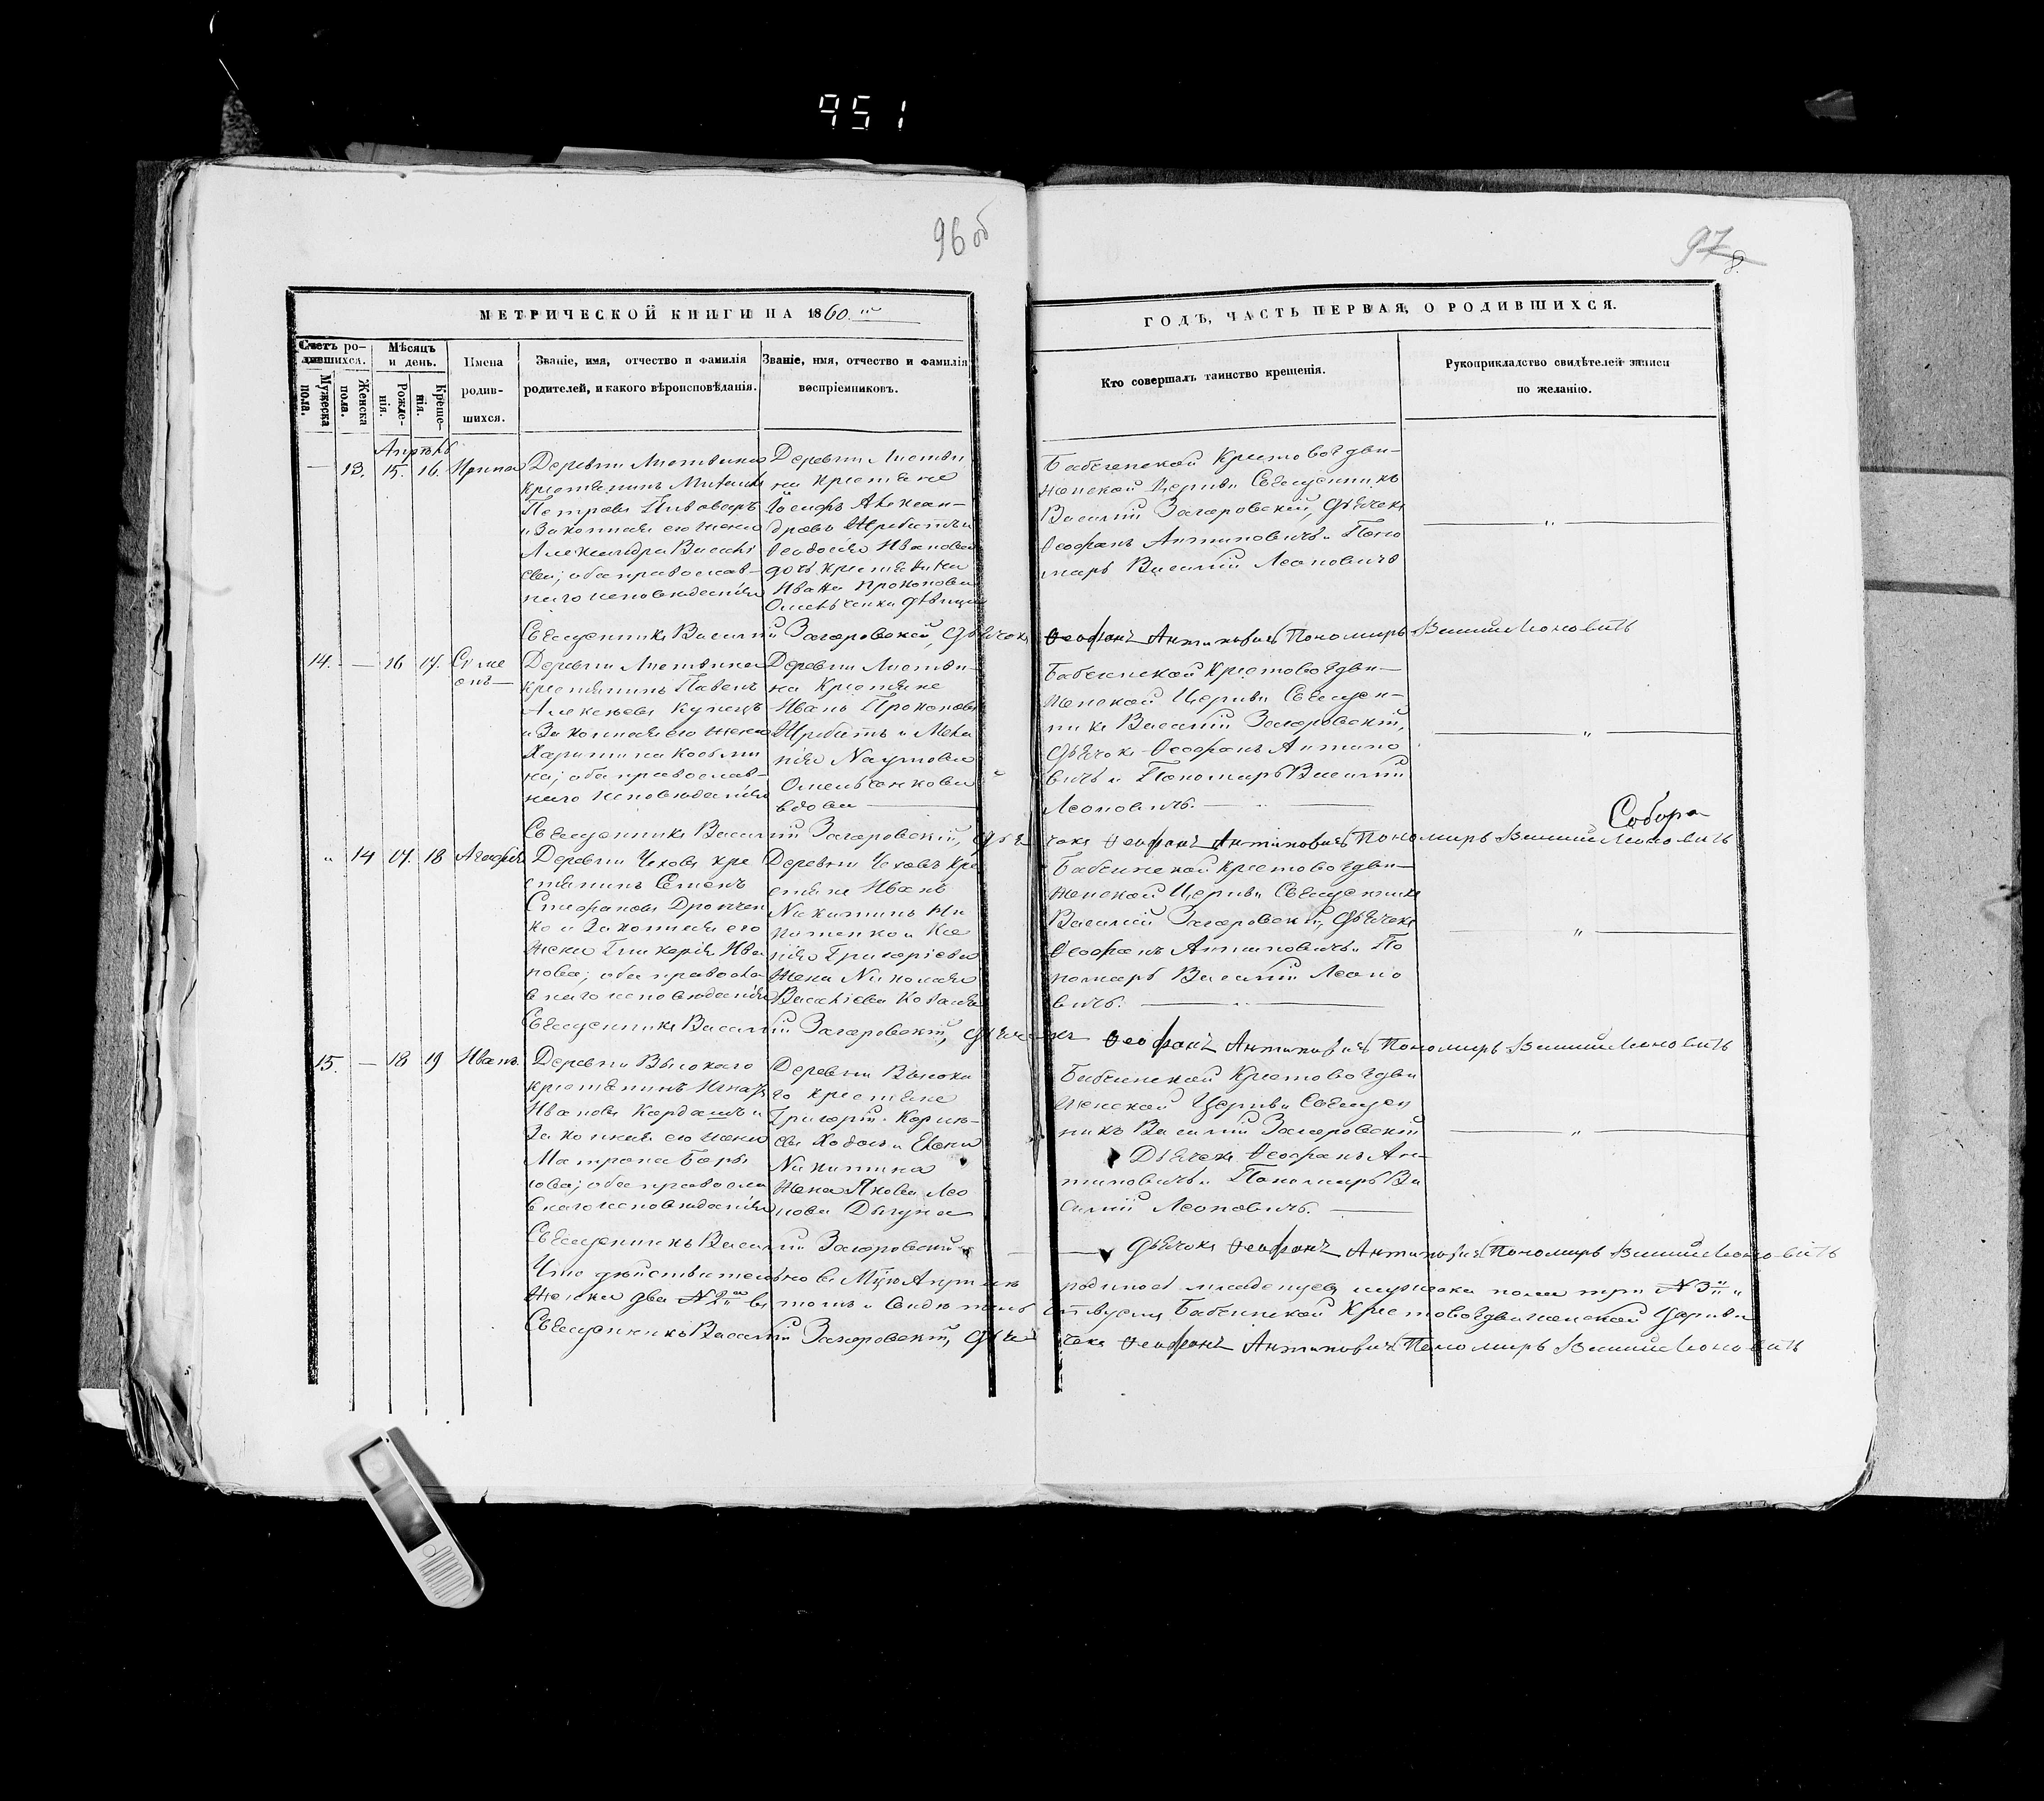 951
96 об
97
8.
МЕТРИЧЕСКОЙ КНИГИ НА 1860.
ГОДЪ, ЧАСТЬ ПЕРВАЯ, О РОДИВШИХСЯ.
Счетъ ро-
дившихся.
Мужеска
пола.
Женска
пола.
Мѣсяцъ
и день.
Рожде-
нія.
Креще-
нія.
Имена
родив-
шихся.
Званіе, имя, отчество и фамилія
родителей, и какого вѣроисповѣданія.
Званіе, имя, отчество и фамилія
воспріемниковъ.
Кто совершалъ таинство крещенія.
Рукоприкладство свидѣтелей записи
по желанію.
Апрѣль
— 13. 15. 16. Ирина
Деревни Листвина
крестьянинъ
Петровъ Пивоваръ
и законная его жена
Александра Василі
ева; оба православ-
наго исповѣданія
Деревни Листви
на крестьяне
Іосифъ Алексан-
дровъ Жребятъ и
Ѳеодосія Иванова
дочь крестьянина
Ивана Прокопова
Омельченка дѣвица
Бабченской Крестовоздви-
женской Церкви Священникъ
Василій Загоровскій, Дьячекъ
Ѳеофанъ Антиповичъ и Поно
марь Василій Леоновичъ
Священникъ Василій Загоровскій, Дьячекъ Ѳеофанъ Антиповичъ Пономарь Василій Леоновичъ
14. — 16 17. Симе
онъ —
Деревни Листвина
крестьянинъ Павелъ
Алексѣевъ Купецъ
и законная его жена
Харитина Косьми
на; оба православ-
наго исповѣданія
Деревни Листви-
на крестьяне
Иванъ Прокоповъ
Жребятъ и Мела
нія Наумова
Омельченкова
вдова —
Бабченской Крестовоздви-
женской Церкви Священ-
никъ Василій Загоровскій,
Дьячекъ Ѳеофанъ Антипо
вичъ и Пономарь Василій
Леоновичъ. —
Собора
Священникъ Василій Загоровскій, Дьячекъ Ѳеофанъ Антиповичъ Пономарь Василій Леоновичъ
" 14 17. 18 Агафія
Деревни Чехова кре
стьянинъ Семенъ
Стефановъ
ко и законная его
жена Гликерія Ива
нова; оба правосла
внаго исповѣданія
Деревни Чеховъ кре
стьяне Иванъ
Никитинъ
и Ксе
нія Григоріева
жена Николая
Василіева Коваля
Бабченской Крестовоздви-
женской Церкви Священникъ
Василій Загоровскій, Дьячекъ
Ѳеофанъ Антиповичъ и По
номарь Василій Леоно
вичъ. —
Священникъ Василій Загоровскій, Дьячекъ Ѳеофанъ Антиповичъ Пономарь Василій Леоновичъ
15. — 18 19 Иванъ.
Деревни Высокаго
крестьянинъ Игнатъ
Ивановъ Кардашъ и
законная его жена
Матрона Бори
сова; оба правосла
внаго исповѣданія
Деревни Высока
го крестьяне
Григорій Корнѣ-
евъ Ходосъ и Елена
Никитина
жена Якова Лео
нова Дыгуна
Бабченской Крестовоздви
женской Церкви Священ
никъ Василій Загоровскій
Дьячекъ Ѳеофанъ Ан-
типовичъ и Пономарь Ва
силій Леоновичъ. —
Священникъ Василій Загоровскій — Дьячекъ Ѳеофанъ Антиповичъ Пономарь Василій Леоновичъ
Что дѣйствительно въ Мцѣ Апрѣлѣ родилось младенцевъ мужеска пола три № 3 "
женска два № 2 въ томъ и свидѣтельствуемъ Бабченской Крестовоздвиженской Церкви
Священникъ Василій Загоровскій, Дьячекъ Ѳеофанъ Антиповичъ Пономарь Василій Леоновичъ